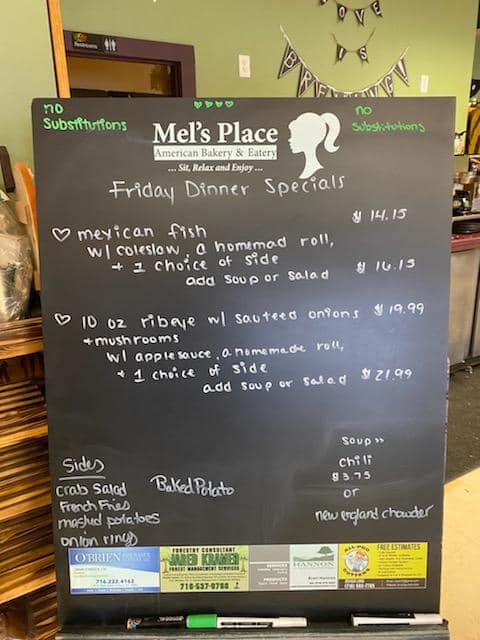 Restrooms
LOVE
IS
no
Substitutions
no
Substitutions
Mel's Place
American Bakery & Eatery
... Sit, Relax and Enjoy ...
Friday Dinner Specials
♡ mexican fish $ 14.15
w/ coleslaw, a homemad roll,
+ 1 choice of side
add soup or salad $ 16.15
♡ 10 oz ribeye w/ sauteed onions $ 19.99
+mushrooms
w/ applesauce, a homemade roll,
+ 1 choice of side
add soup or salad $ 21.99
Sides
Crab Salad
French Fries
mashed potatoes
onion rings
Baked Potato
Soup>>
chili
$3.75
or
new england chowder
O'BRIEN
716.222.4162
FORESTRY CONSULTANT
JARED KRAMER
FOREST MANAGEMENT SERVICES
716-537-9766
SERVICES
PRODUCTS
HANNON
ALL-PRO
FREE ESTIMATES